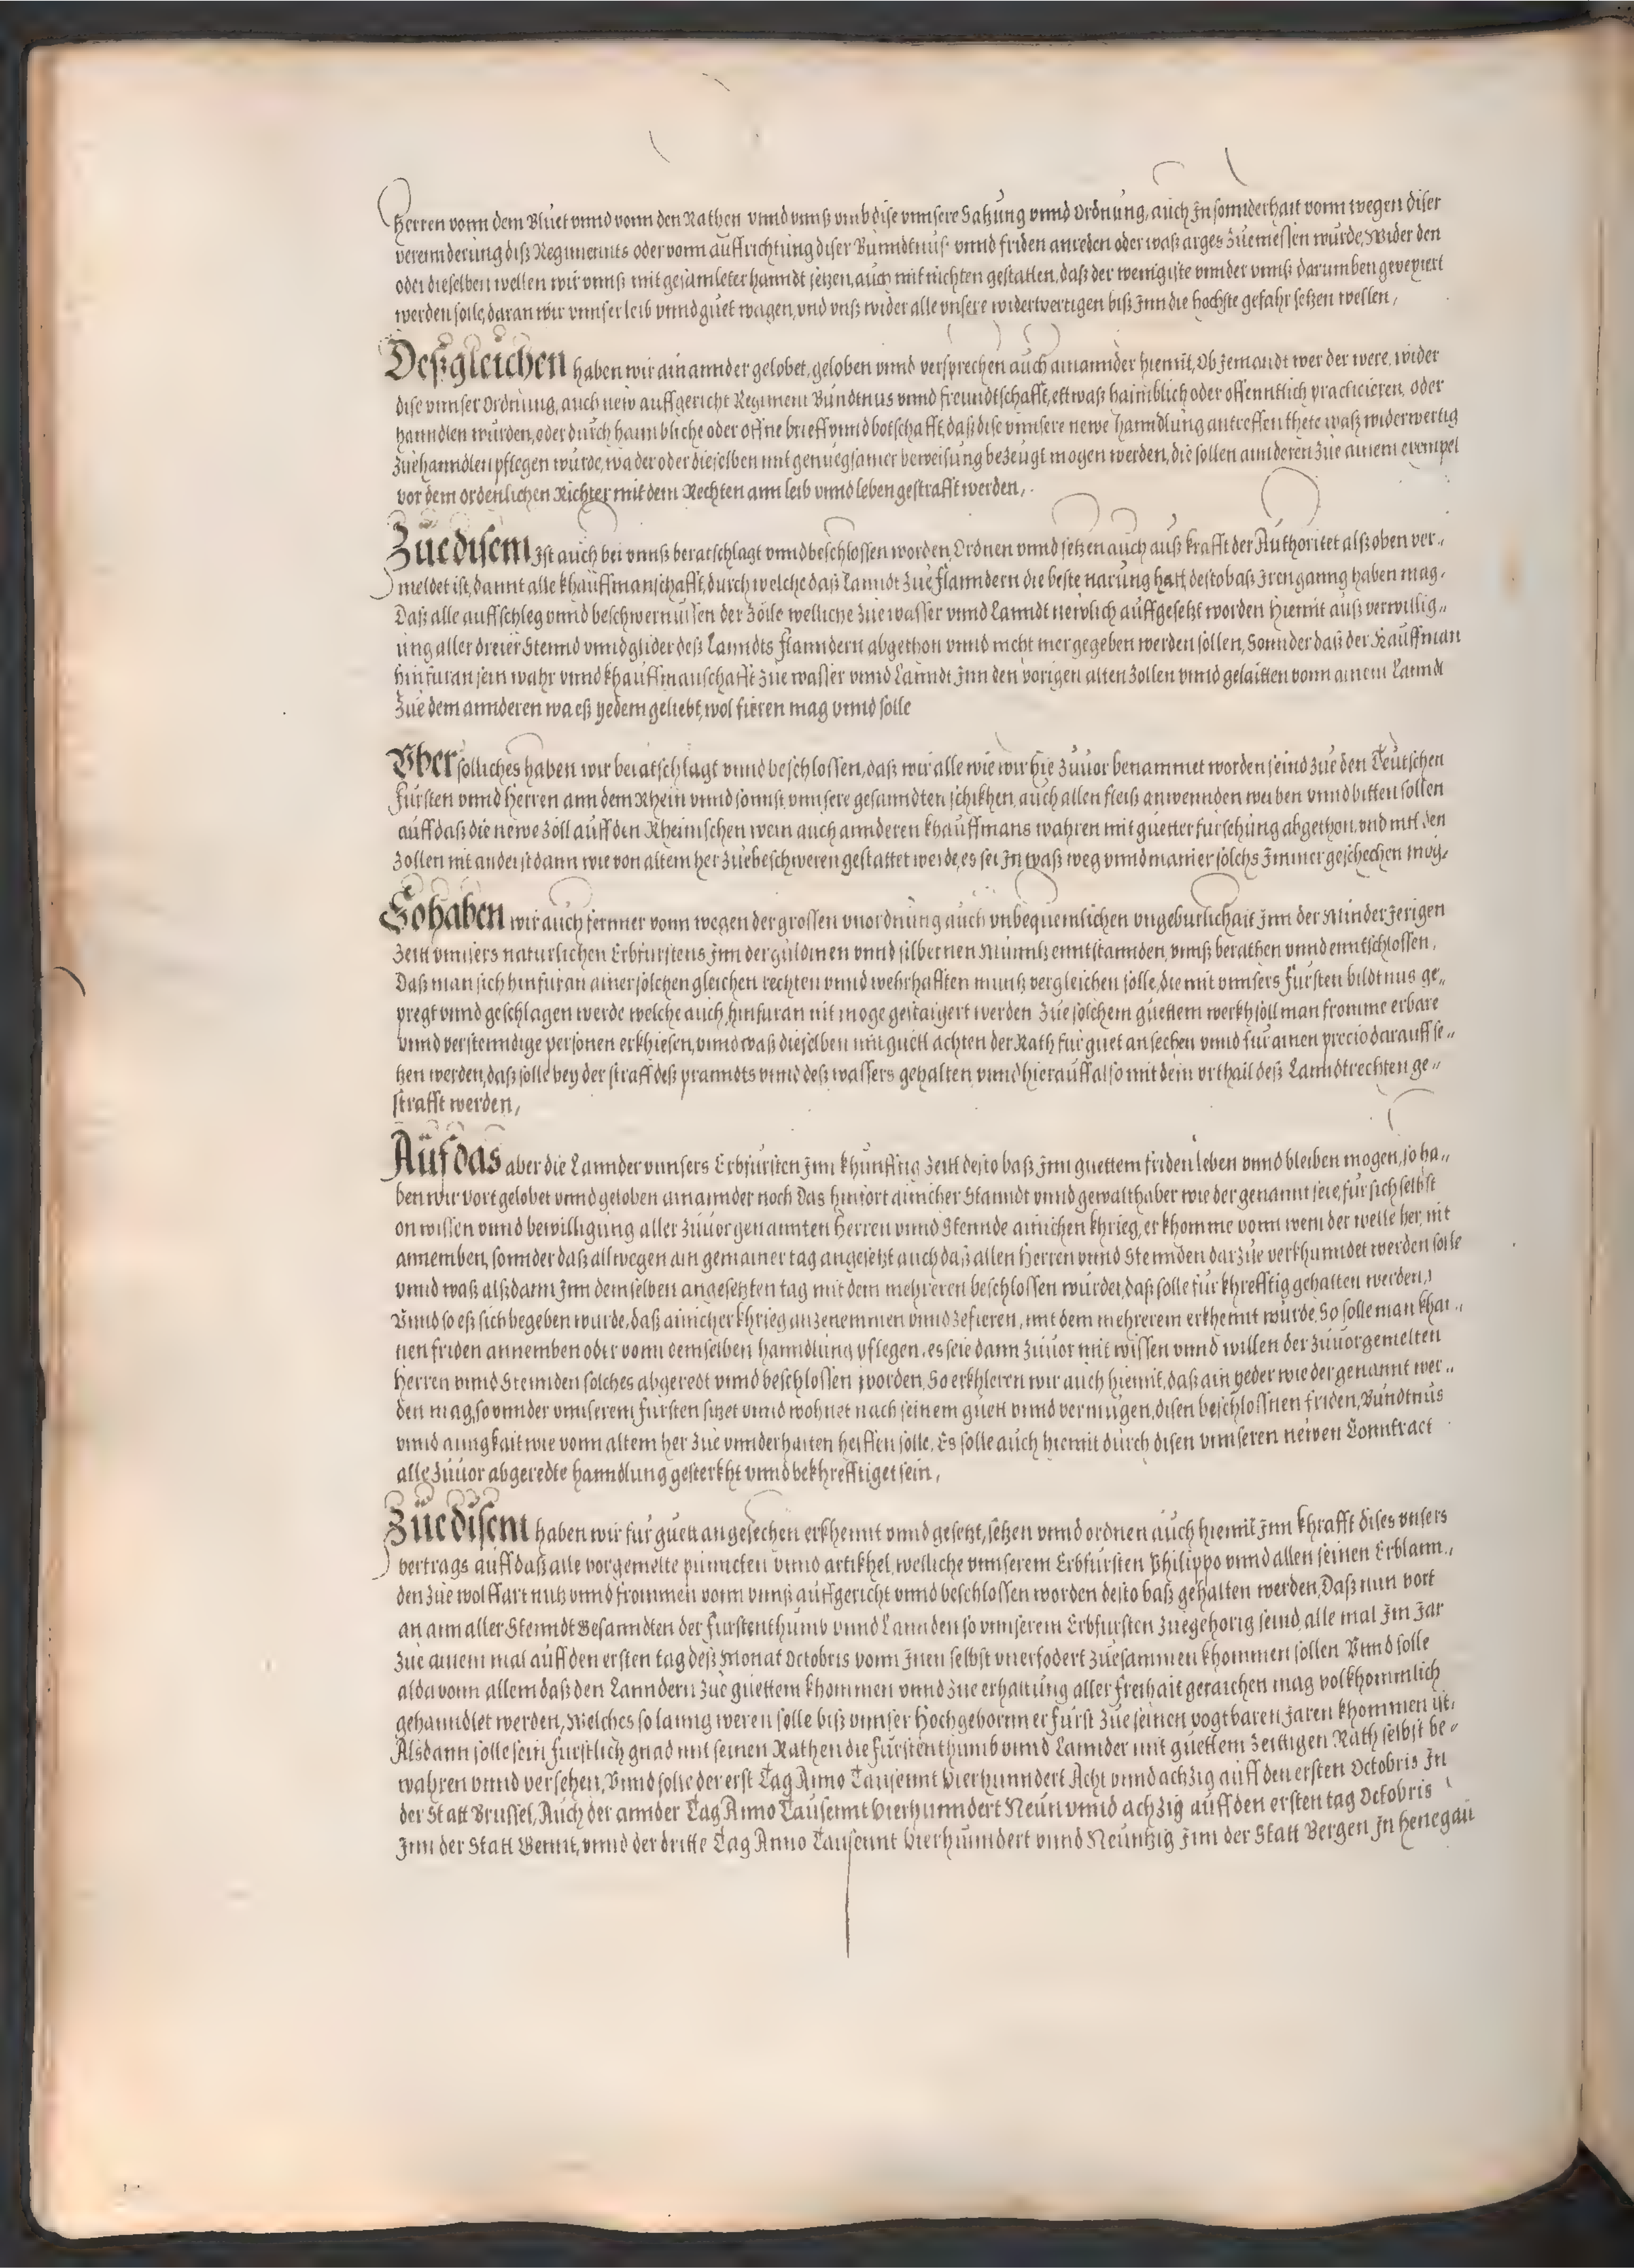 Herren vonn dem Bluet vnnd vonn den Rathen vnnd vnnß vmb dise vnnsere Satzung vnnd Ordnung, auch Jn sonnderhait vonn wegen diser
verennderung diß Regiments oder vonn auffrichtung diser Bundtnus vnnd friden anreden oder waß arges Zuemessen wurde, Wider den
oder dieselben wellen wir vnnß mit gesamleter hanndt setzen, auch mit nichten gestatten, daß der wenigiste vnnder vnnß darumben gevexiert
werden solle, daran wir vnnser leib vnnd guet wagen, vnd vnß wider alle vnsere widerwertigen biß Jnn die hochste gefahr setzen wellen,
Deßgleichen haben wir ainannder gelobet, geloben vnnd versprechen auch ainannder hiemit, Ob Jemandt wer der were, wider
dise vnnser Ordnung, auch new auffgericht Regiment Bundtnus vnnd freundtschafft, ettwaß haimblich oder offenntlich practicieren, oder
hanndlen wurden, oder durch haimbliche oder offne brieff vnnd botschafft, daß dise vnnsere newe hanndlung antreffen thete waß widerwertig
Zuehanndlen pflegen wurde, wa der oder dieselben mit genuegsamer beweisung bezeugt mogen werden, die sollen annderen Zue ainem exempel
vor dem ordenlichen Richter mit dem Rechten ann leib vnnd leben gestrafft werden,
Zue disem Jst auch bei vnnß beratschlagt vnnd beschlossen worden, Ordnen vnnd setzen auch auß krafft der Authoritet alß oben ver„
meldet ist, damit alle khauffmanschafft, durch welche daß Lanndt Zue flanndern die beste narung hatt, desto baß Jren ganng haben mag,
Daß alle auffschleg vnnd beschwernussen der Zölle welliche Zue wasser vnnd Lanndt newlich auffgesetzt worden hiemit auß verwillig„
ung aller dreier Stennd vnnd glider deß Lanndts flanndern abgethon vnnd nicht mer gegeben werden sollen, Sonnder daß der Kauffman
hinfuran sein wahr vnnd khauffmanschafft Zue wasser vnnd Lanndt Jnn den vorigen alten Zollen vnnd gelaitten vonn ainem Lanndt
Zue dem annderen wa eß yedem geliebt, wol fieren mag vnnd solle
Vber solliches haben wir beratschlagt vnnd beschlossen, daß wir alle wie wir hie Zuuor benammet worden seind Zue den Teutschen
Fursten vnnd Herren ann dem Rhein vnnd sonnst vnnsere gesanndten schikhen, auch allen fleiß anwennden werben vnnd bitten sollen
auff daß die newe Zöll auff den Rheinischen wein auch annderen khauffmans wahren mit guetter fursehung abgethon, vnd mit den
Zollen nit anderst dann wie von altem her Zuebeschweren gestattet werde, es sei Jn waß weg vnnd manier solchs Jmmer geschechen mög,
So haben wir auch fernner vonn wegen der grossen vnordnung auch vnbequemlichen vngeburlichait Jnn der Minder Jerigen
Zeitt vnnsers naturlichen Erbfurstens Jnn der guldinen vnnd silbernen Munntz enntstannden, vnnß berathen vnnd enntschlossen,
Daß man sich hinfuran ainer solchen gleichen rechten vnnd wehrhafften muntz vergleichen solle, die mit vnnsers Fursten bildtnus ge„
pregt vnnd geschlagen werde welche auch hinfuran nit moge gestaigert werden Zue solchem guettem werkh soll man fromme erbare
vnnd verstenndige personen erkhiesen, vnnd waß dieselben mit guett achten der Rath fur guet ansechen vnnd fur ainen precio darauff se„
tzen werden, daß solle bey der straff deß pranndts vnnd deß wassers gehalten vnnd hierauff also mit dem vrthail deß Lanndtrechten ge„
strafft werden,
Auf das aber die Lannder vnnsers Erbfursten Jnn khunfftig Zeitt desto baß Jnn guettem friden leben vnnd bleiben mogen, so ha„
ben wir vort gelobet vnnd geloben ainannder noch Das hinfort ainicher Stanndt vnnd gewalthaber wie der genannt seie, fur sich selbst
on wissen vnnd bewilligung aller Zuuorgenannten Herren vnnd Stennde ainichen khrieg, er khomme vonn wem der welle her, nit
annemben, sonnder daß allwegen ain gemainer tag angesetzt auch daß allen Herren vnnd Stennden darzue verkhunndet werden solle
vnnd waß alßdann Jnn demselben angesetzten tag mit dem mehreren beschlossen wurdet, daß solle fur khrefftig gehalten werden,
Vnnd so eß sich begeben wurde, daß ainicher khrieg anzenemmen vnnd zefieren, mit dem mehrerem erkhennt wurde, So solle man khai„
nen friden annemben oder vonn demselben hanndlung pflegen, es seie dann Zuuor mit wissen vnnd willen der Zuuorgemelten
Herren vnnd Stennden solches abgeredt vnnd beschlossen worden, So erkhleren wir auch hiemit, daß ain yeder wie der genannt wer„
den mag, so vnnder vnnserem fursten sitzet vnnd wohnet nach seinem guett vnnd vermugen, disen beschloßnen friden, Bundtnus
vnnd ainigkait wie vonn altem her Zue vnnderhalten helffen solle, Es solle auch hiemit durch disen vnnseren newen Conntract
alle Zuuor abgeredte hanndlung gesterkht vnnd bekhrefftiget sein,
Zue disem haben wir fur guett angesechen erkhennt vnnd gesetzt, setzen vnnd ordnen auch hiemit Jnn khrafft dises vnsers
vertrags auff daß alle vorgemelte puncten vnnd artikhel, welliche vnnserem Erbfursten Philippo vnnd allen seinen Erblann„
den Zue wolffart nutz vnnd frommen vonn vnnß auffgericht vnnd beschlossen worden desto baß gehalten werden, Daß nun vort
an ann aller Stenndt Gesanndten der Furstenthumb vnnd Lannden so vnnserem Erbfursten Zuegehorig seind, alle mal Jm Jar
Zue ainem mal auff den ersten tag deß Monat Octobris vonn Jnen selbst vnerfodert Zuesammen khommen sollen Vnnd solle
alda vonn allem daß den Lanndern Zue guettem khommen vnnd Zue erhaltung aller freihait geraichen mag volkhommlich
gehanndlet werden, Welches so lanng weren solle biß vnnser Hochgebornner Furst Zue seinen vogtbaren Jaren khommen ist,
Alsdann solle sein furstlich gnad mit seinen Rathen die Furstenthumb vnnd Lannder mit guettem Zeittigen Rath selbst be„
wahren vnnd versehen, Vnnd solle der erst Tag Anno Tausennt Vierhunndert Acht vnnd achzig auff den ersten Octobris Jn
der Statt Brussel, Auch der annder Tag Anno Tausennt Vierhunndert Neun vnnd achzig auff den ersten tag Octobris
Jnn der Statt Gennt, vnnd der dritte Tag Anno Tausennt Vierhunndert vnnd Neuntzig Jnn der Statt Bergen Jn Henegau